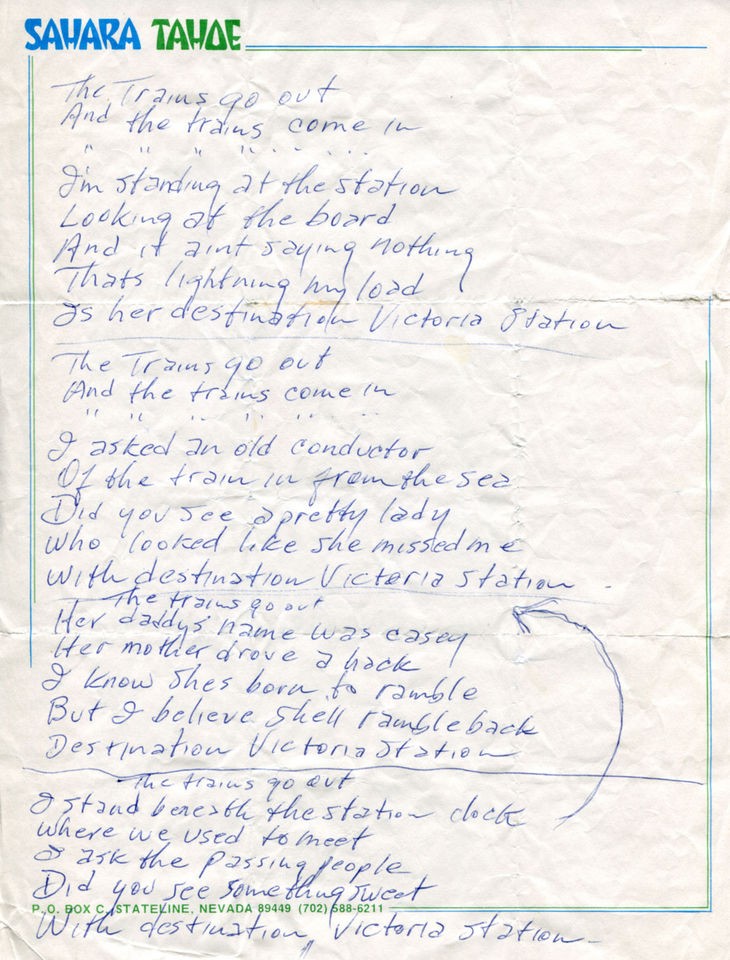 SAHARA TAHOE
The Trains go out
And the trains come in
" " " " " " "
I'm standing at the station
Looking at the board
And it aint saying nothing
Thats lightning my load
Is her destination Victoria Station
The Trains go out
And the trains come in
" " " " " " "
I asked an old conductor
Of the train in from the sea
Did you see a pretty lady
Who looked like she missed me
With destination Victoria Station
The trains go out
Her daddys' name was casey
Her mother drove a hack
I know shes born to ramble
But I believe shell ramble back
Destination Victoria Station
The trains go out
I stand beneath the station clock
where we used to meet
I ask the passing people
Did you see something sweet
P.O. BOX C, STATELINE, NEVADA 89449 (702) 588-6211
With destination Victoria Station